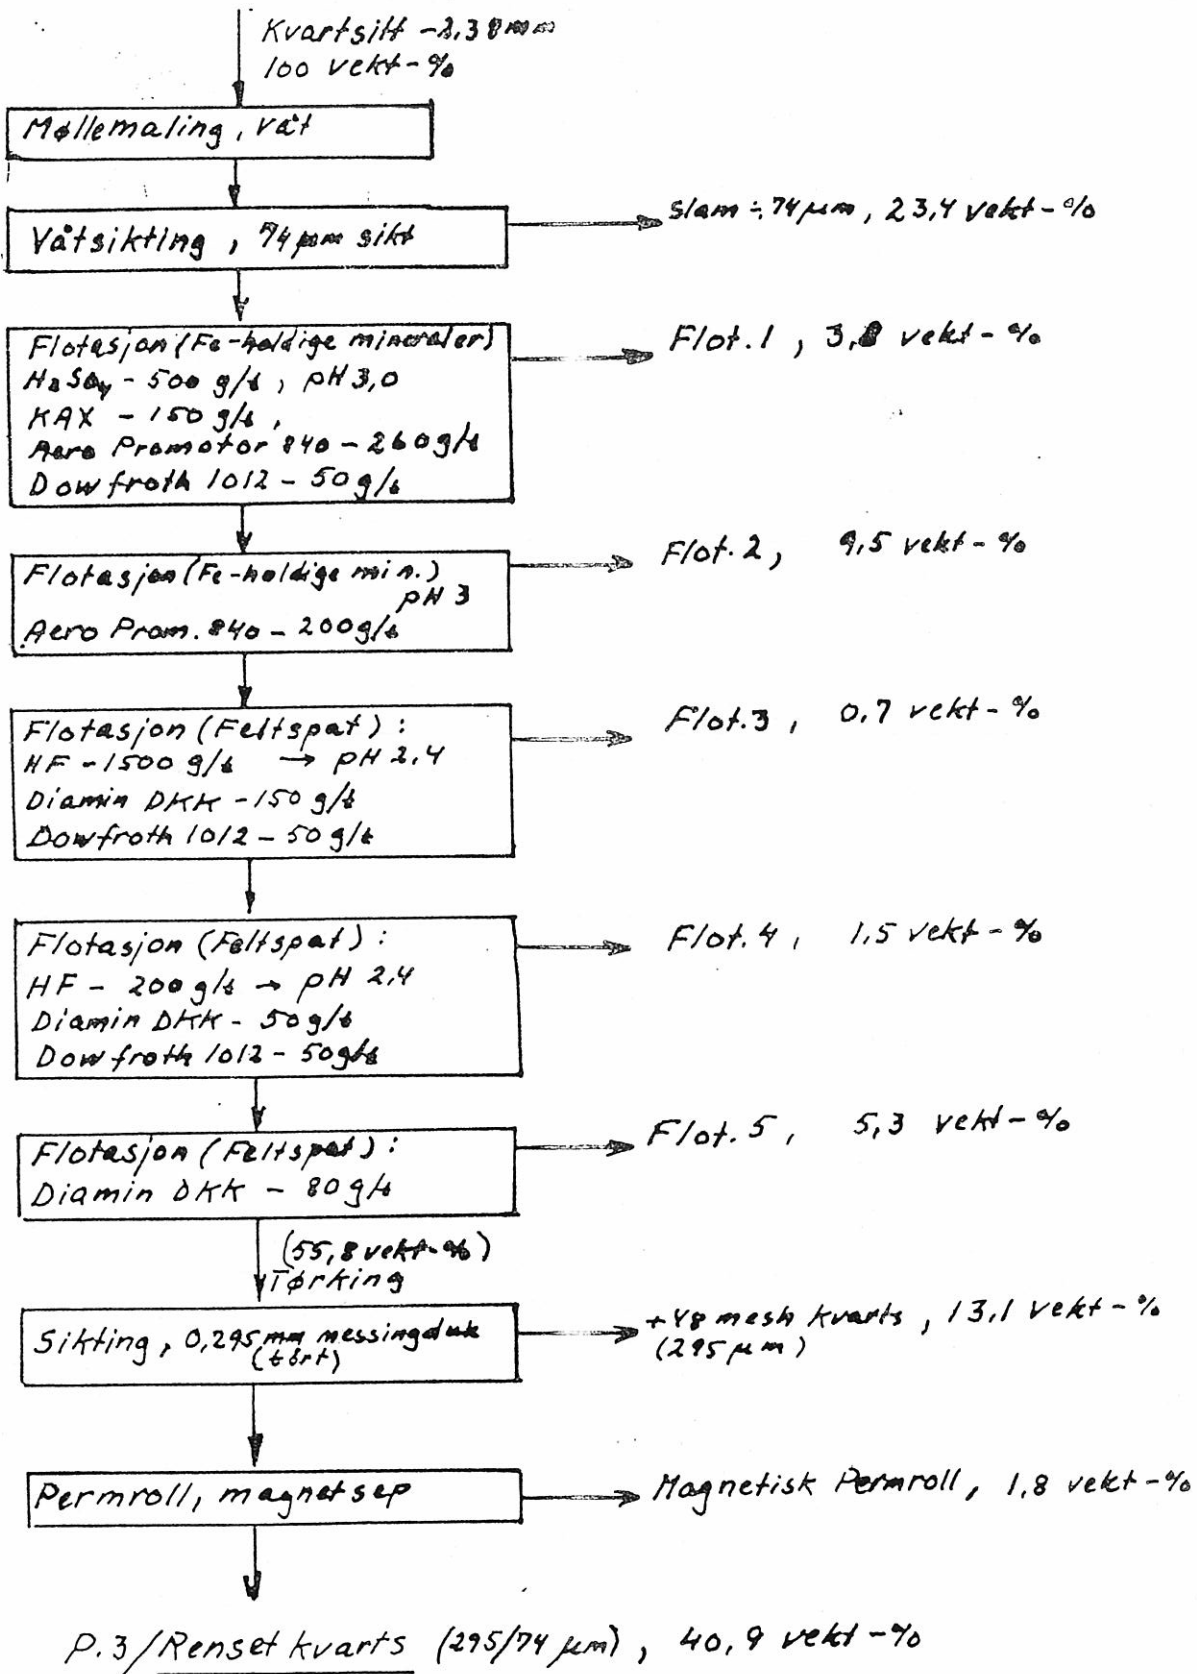 Kvartsitt -2,38mm
100 vekt-%
Møllemaling, våt
Våtsikting, 74 µm sikt
slam ÷74 µm, 23,4 vekt-%
Flotasjon (Fe-holdige mineraler)
H2SO4 - 500 g/t, pH 3,0
KAX - 150 g/t,
Aero Promotor 840 - 260 g/t
Dowfroth 1012 - 50 g/t
Flot. 1, 3,8 vekt-%
Flotasjon (Fe-holdige min.)
pH 3
Aero Prom. 840 - 200 g/t
Flot. 2, 9,5 vekt-%
Flotasjon (Feltspat):
HF - 1500 g/t → pH 2,4
Diamin DKK - 150 g/t
Dowfroth 1012 - 50 g/t
Flot. 3, 0,7 vekt-%
Flotasjon (Feltspat):
HF - 200 g/t → pH 2,4
Diamin DKK - 50 g/t
Dowfroth 1012 - 50 g/t
Flot. 4, 1,5 vekt-%
Flotasjon (Feltspat):
Diamin DKK - 80 g/t
Flot. 5, 5,3 vekt-%
(55,8 vekt-%)
Tørking
Sikting, 0,295 mm messingduk
(tørt)
+48 mesh kvarts, 13,1 vekt-%
(295 µm)
Permroll, magnetsep
Magnetisk Permroll, 1,8 vekt-%
P.3/Renset kvarts (295/74 µm), 40,9 vekt-%